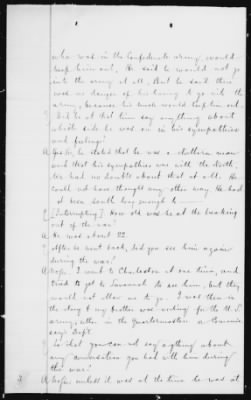 who was in the Confederate army, would
keep him out. He said he would not go
into the army at all. But he said there
was no danger of his having to go into the
army, because his uncle would keep him out.
Q Did he at that time say anything about
which side he was on in his sympathies
and feelings?
A he stated that he was a southern man
and that his sympathies was with the South,
had no doubt about that at all. He
could not have thought any other way. He had
been south long enough to
Q [Interrupting] How old was he at the breaking
out of the war?
A He was about 22
Q After he went back, did you see him again
during the war?
A I went to Charleston at one time, and
tried to get to Savannah to see him, but they
would not allow me to go. I was then in
the Navy & my brother was working for the U.S.
army, either in the Quartermaster or
Dep't.
Q So that you can not say anything about
any conversation you had with him during
the war?
A unless it was at the time he was at